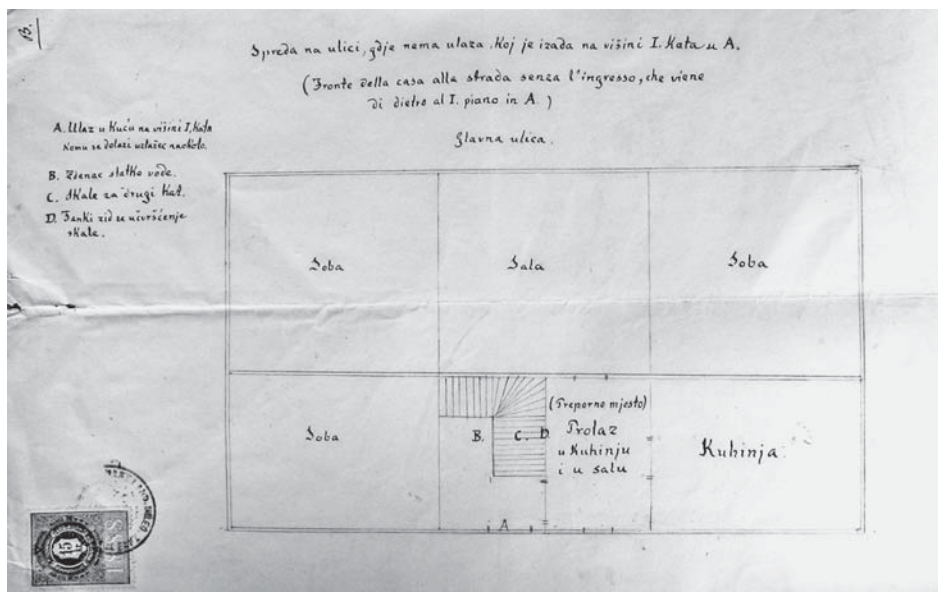 B.
Spreda na ulici, gdje nema ulaza. Koj je izada na višini I. Kata u A.
(Fronte della casa alla strada senza l'ingresso, che viene
di dietro al I. piano in A.)
Glavna ulica.
A. Ulaz u Kuću na višini I, Kata
Komu se dolazi uzlažec naokolo.
B. Zdenac slatke vode.
C. Skale za drugi Kat.
D. Tanki zid za učvršćenje
skale.
Soba
Sala
Soba
Soba
B.
C.
D.
(Preporno mjesto)
Prolaz
u Kuhinju
i u salu
Kuhinja
A
15